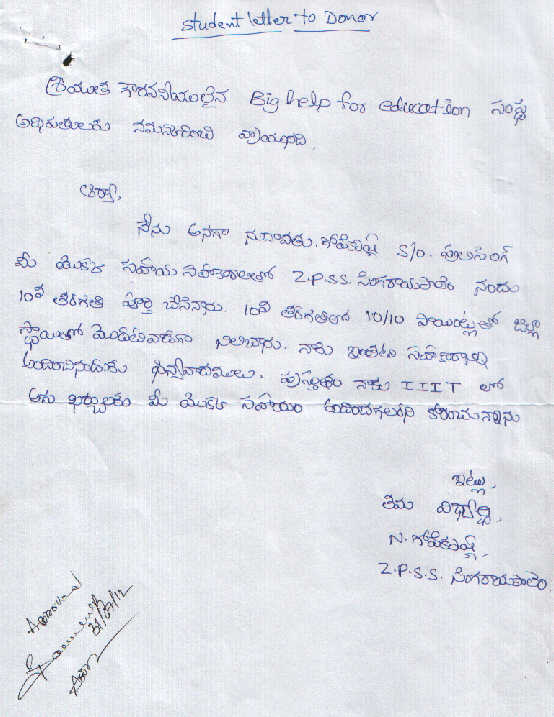 Student letter to Donor
శ్రీయుత గౌరవనీయులైన Big help for education సంస్థ
అధికారులకు నమస్కరించి వ్రాయునది.
ఆర్యా,
నేను అనగా నూనావతు. గోపికృష్ణ S/o. ఫులిసింగ్
మీ యొక్క సహాయ సహకారాలతో Z.P.S.S. సింగరాయపాలెం నందు
10వ తరగతి పూర్తి చేసినాను. 10వ తరగతిలో 10/10 పాయింట్లుతో జిల్లా
స్థాయిలో మొదటివాడిగా నిలిచాను. నాకు ఇంతటి సహకారాన్ని
అందించినందుకు ధన్యవాదములు. ప్రస్తుతం నాకు IIIT లో
అగు ఖర్చులకు మీ యొక్క సహాయం అందించగలరని కోరుచున్నాను
ఇట్లు,
తమ విద్యార్థి,
N. గోపికృష్ణ,
Z.P.S.S. సింగరాయపాలెం.
31/07/12